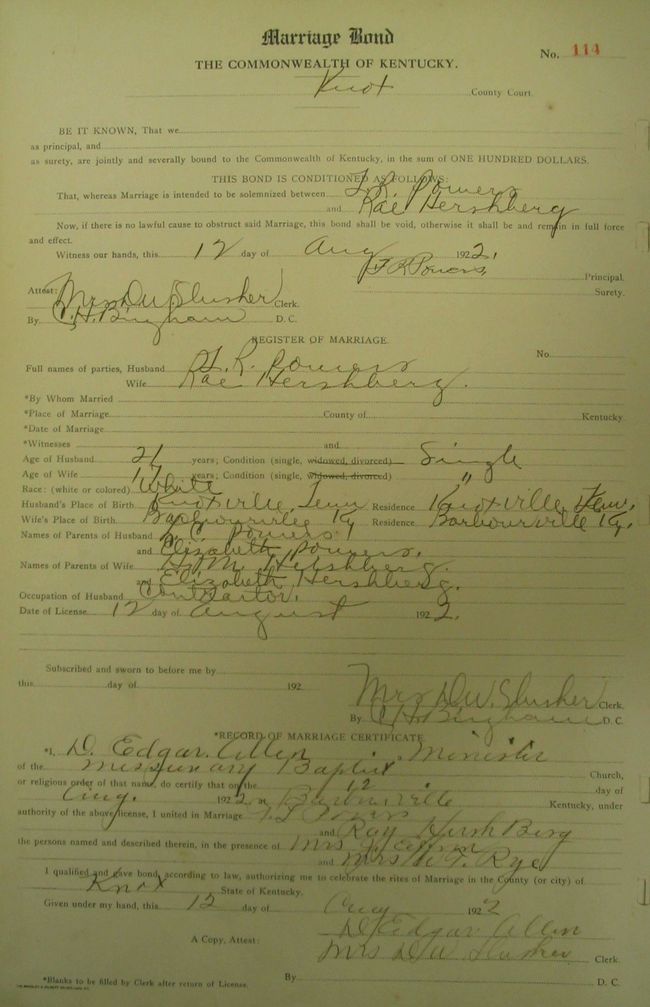 Marriage Bond
THE COMMONWEALTH OF KENTUCKY.
No. 114
Knox County Court.
BE IT KNOWN, That we
as principal, and
as surety, are jointly and severally bound to the Commonwealth of Kentucky, in the sum of ONE HUNDRED DOLLARS.
THIS BOND IS CONDITIONED AS FOLLOWS:
That, whereas Marriage is intended to be solemnized between Powers
and Rae Hershberg
Now, if there is no lawful cause to obstruct said Marriage, this bond shall be void, otherwise it shall be and remain in full force
and effect.
Witness our hands, this 12 day of Aug 1922.
Powers Principal.
Surety.
Attest: Mrs D W Slusher Clerk.
By C. H. Bingham D. C.
REGISTER OF MARRIAGE.
No.
Full names of parties, Husband Powers
Wife Rae Hershberg.
*By Whom Married
*Place of Marriage County of Kentucky.
*Date of Marriage
*Witnesses and
Age of Husband 21 years; Condition (single, widowed, divorced) Single
Age of Wife 17 years; Condition (single, widowed, divorced) "
Race: (white or colored) White
Husband's Place of Birth Knoxville, Tenn Residence Knoxville, Tenn.
Wife's Place of Birth Barbourville Ky Residence Barbourville Ky.
Names of Parents of Husband Powers
and Elizabeth Powers.
Names of Parents of Wife Hershberg.
and Elizabeth Hershberg.
Occupation of Husband Contractor.
Date of License 12 day of August 1922.
Subscribed and sworn to before me by
this day of 192
Mrs D W. Slusher Clerk.
By C H Bingham D. C.
*RECORD OF MARRIAGE CERTIFICATE
*I, D. Edgar Allen Minister
of the Missionary Baptist Church,
or religious order of that name, do certify that on the 12 day of
Aug. 1922 Kentucky, under
authority of the above license, I united in Marriage
and Ray Hirsh Berg
the persons named and described therein, in the presence of Mrs
and Mrs Rye
I qualified and gave bond, according to law, authorizing me to celebrate the rites of Marriage in the County (or city) of
Knox State of Kentucky.
Given under my hand, this 12 day of Aug 1922
D. Edgar Allen
A Copy, Attest: Mrs D W Slusher Clerk.
By D. C.
*Blanks to be filled by Clerk after return of License.